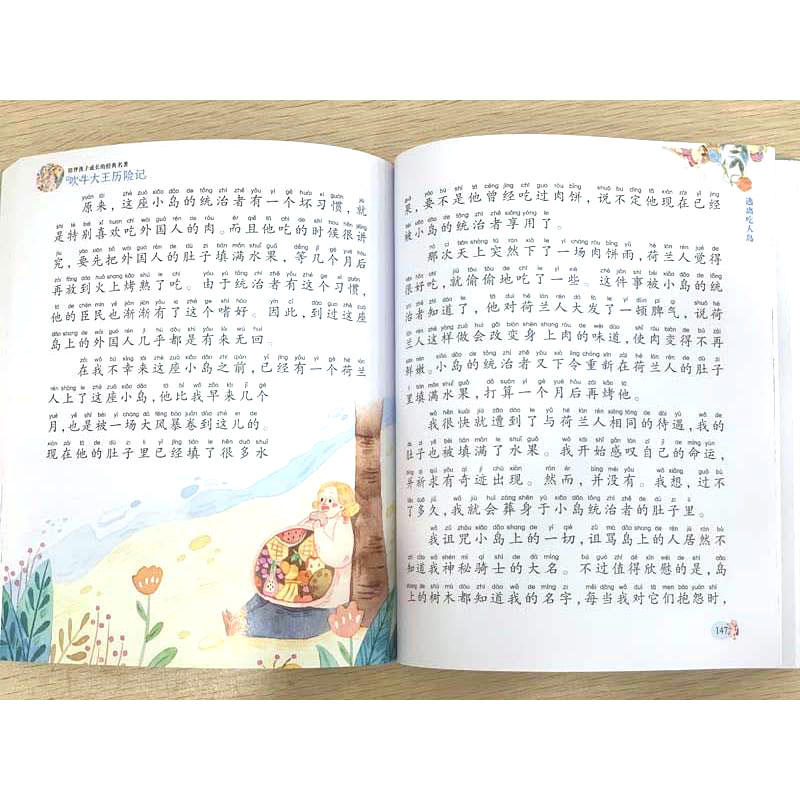 陪伴孩子成长的经典名著
吹牛大王历险记
原来，这座小岛的统治者有一个坏习惯，就
是特别喜欢吃外国人的肉。而且他吃的时候很讲
究，要先把外国人的肚子填满水果，等几个月后
再放到火上烤熟了吃。由于统治者有这个习惯，
他的臣民也渐渐有了这个嗜好。因此，到过这座
岛上的外国人几乎都是有来无回。
在我不幸来这座小岛之前，已经有一个荷兰
人上了这座小岛，他比我早来几个
月，也是被一场大风暴卷到这儿的。
现在他的肚子里已经填了很多水
逃离吃人岛
果，要不是他曾经吃过肉饼，说不定他现在已经
被小岛的统治者享用了。
那次天上突然下了一场肉饼雨，荷兰人觉得
很好吃，就偷偷地吃了一些。这件事被小岛的统
治者知道了，他对荷兰人大发了一顿脾气，说荷
兰人这样做会改变身上肉的味道，使肉变得不再
鲜嫩。小岛的统治者又下令重新在荷兰人的肚子
里填满水果，打算一个月后再烤他。
我很快就遭到了与荷兰人相同的待遇，我的
肚子也被填满了水果。我开始感叹自己的命运，
并祈求有奇迹出现。然而，并没有。我想，过不
了多久，我就会葬身于小岛统治者的肚子里。
我诅咒小岛上的一切，诅骂岛上的人居然不
知道我神秘骑士的大名。不过值得欣慰的是，岛
上的树木都知道我的名字，每当我对它们抱怨时，
147